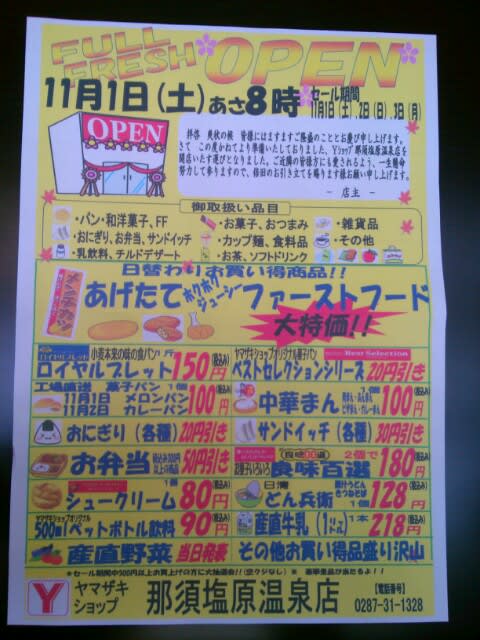 FULL FRESH OPEN
11月1日(土)あさ8時
セール期間
11月1日(土).2日(日).3日(月)
OPEN
拝啓 爽秋の候 皆様にはますますご隆盛のこととお慶び申し上げます。
さて この度かねてより準備いたしておりました、Yショップ那須塩原温泉店を
開店いたす運びとなりました。ご近隣の皆様方にも愛されるよう、一生懸命
努力して参りますので、倍旧のお引き立てを賜ります様お願い申し上げます。
- 店主 -
御取扱い品目
・パン・和洋菓子、FF
・お菓子、おつまみ
・雑貨品
・おにぎり、お弁当、サンドイッチ
・カップ麺、食料品
・その他
・乳飲料、チルドデザート
・お茶、ソフトドリンク
日替わりお買い得商品!!
メンチカツ
あげたて ホクホク ジューシー ファーストフード
大特価!!
小麦本来の味の食パン
ロイヤルブレット 150円(税込み)
ヤマザキショップオリジナル菓子パン
Best Selection
ベストセレクションシリーズ 20円引き
工場直送 菓子パン 1個
11月1日 メロンパン
11月2日 カレーパン
100円(税込み)
中華まん 1個 100円(税込み)
おにぎり(各種)20円引き
サンドイッチ(各種)30円引き
お弁当 50円引き
お菓子いろいろ 良味100選
良味百選 2個で 180円(税込み)
シュークリーム 1個 80円(税込み)
日清 どん兵衛 1個 128円(税込み)
ヤマザキショップオリジナル
500mlペットボトル飲料 90円(税込み)
産直牛乳(1リットル) 1本 218円(税込み)
産直野菜 当日発表
その他お買い得品盛り沢山
*セール期間中500円以上お買上げの方に大抽選会!!(空クジなし) * 豪華景品が当たるよ!!
Y ヤマザキショップ 那須塩原温泉店
【電話番号】
0287-31-1328